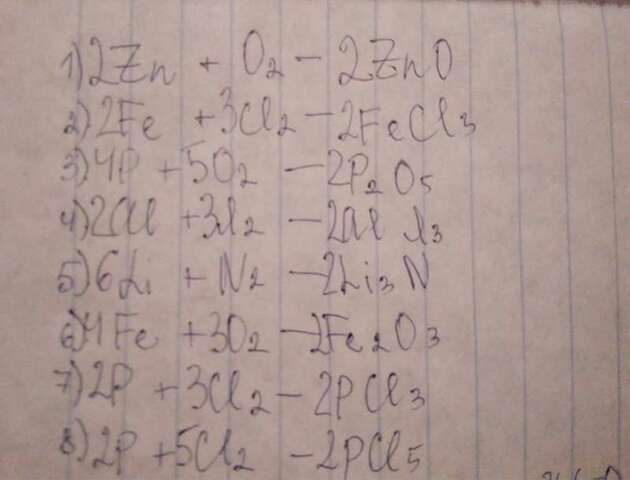 1) 2Zn + O₂ — 2ZnO
2) 2Fe + 3Cl₂ — 2FeCl₃
3) 4P + 5O₂ — 2P₂O₅
4) 2Al + 3I₂ — 2Al I₃
5) 6Li + N₂ — 2Li₃N
6) 4Fe + 3O₂ — 2Fe₂O₃
7) 2P + 3Cl₂ — 2PCl₃
8) 2P + 5Cl₂ — 2PCl₅